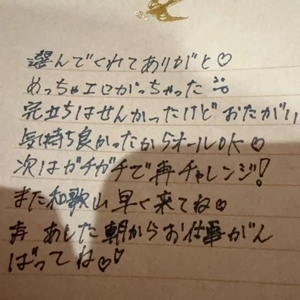 選んでくれてありがと♡
めっちゃエロがっちゃった
完立ちはせんかったけどおたがい
気持ち良かったからオールOK♡
次はガチガチで再チャレンジ!
また和歌山早く来てね♡
あした朝からお仕事がん
ばってね♡♡